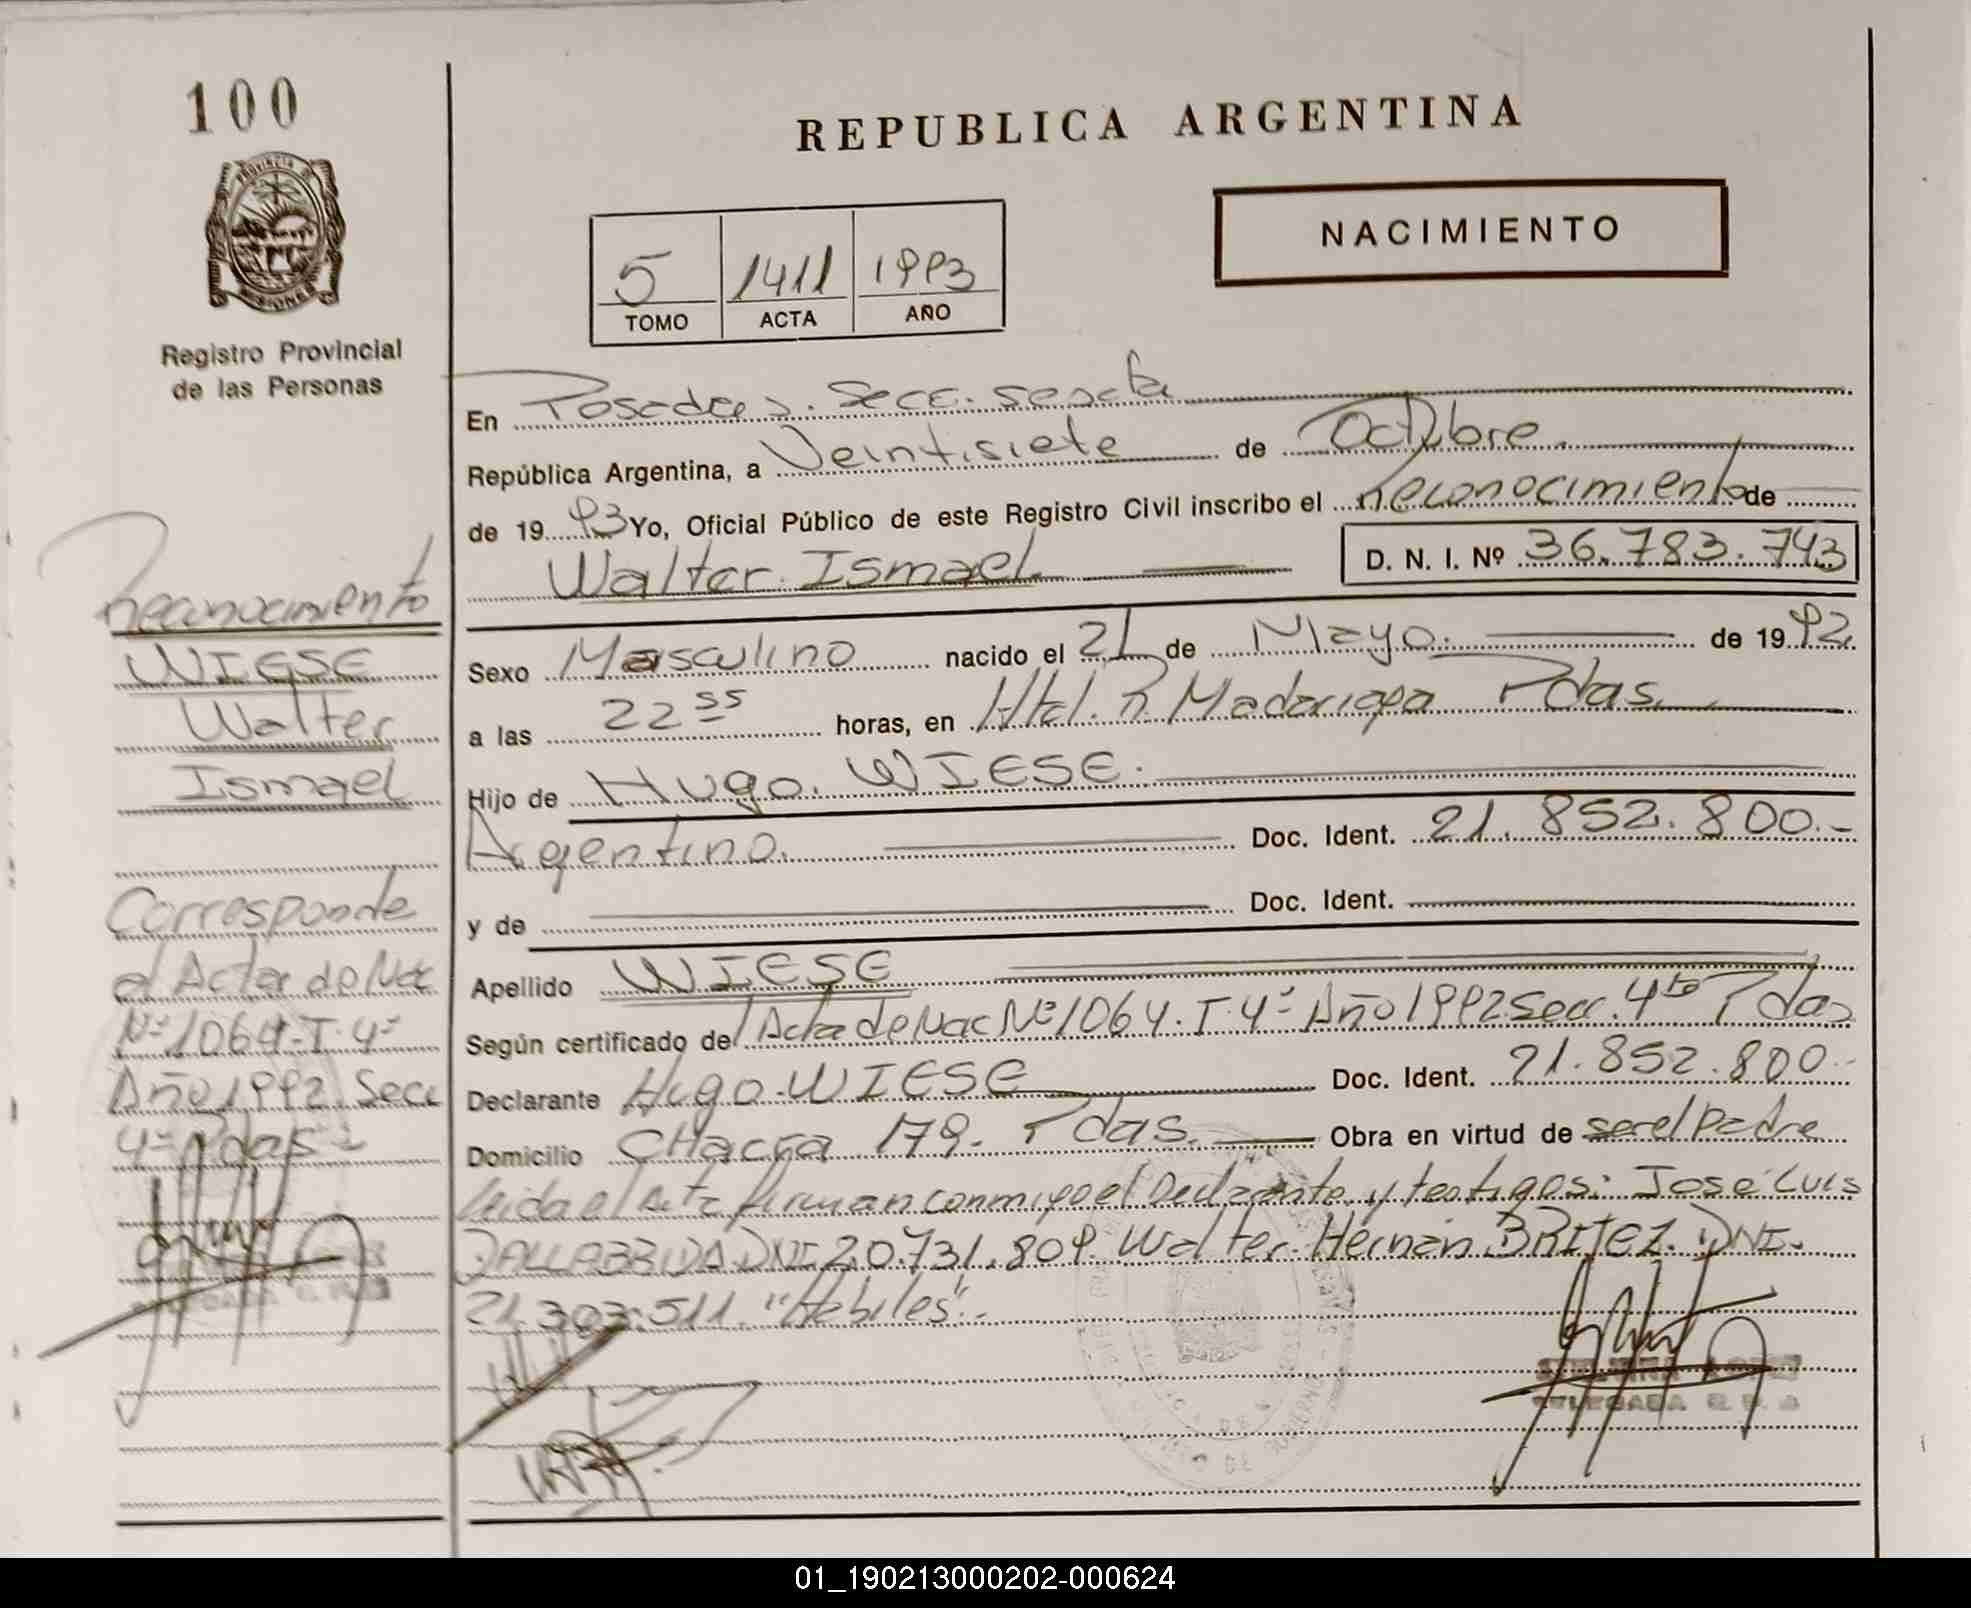 100
REPUBLICA ARGENTINA
PROVINCIA DE
MISIONES
Registro Provincial
de las Personas
NACIMIENTO
5 1411 1993
TOMO ACTA AÑO
En Posadas. Secc. sexta
República Argentina, a Veintisiete de Octubre.
de 19 93 Yo, Oficial Público de este Registro Civil inscribo el Reconocimiento de
Walter Ismael D. N. I. Nº 36.783.743
Sexo Masculino nacido el 21 de Mayo. de 19 92.
a las 22 55 horas, en Htal. R. Madariaga Pdas.
Hijo de Hugo. WIESE.
Argentino. Doc. Ident. 21.852.800.-
y de Doc. Ident.
Apellido WIESE
Según certificado del Acta de Nac Nº 1064. T. 4º Año 1992 Secc. 4ta Pdas
Declarante Hugo. WIESE Doc. Ident. 21.852.800.-
Domicilio CHacra 179. Pdas. Obra en virtud de ser el Padre
Leida el Acta firman conmigo el Declarante y testigos: José Luis
DALLABRIDA DNI 20.731.809. Walter Hernán BRITEZ. DNI.
21.303.511. "Habiles".-
Reconocimiento
WIESE
Walter
Ismael
Corresponde
al Acta de Nac
Nº 1064-T. 4º
Año 1992. Secc
4º Pdas
DELEGADA R. P.
01_190213000202-000624